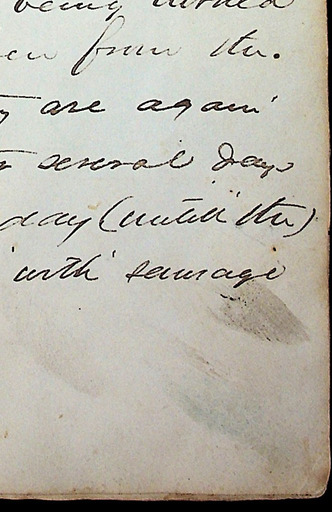 being
from the.
are again
several days
day (until the)
with sausage